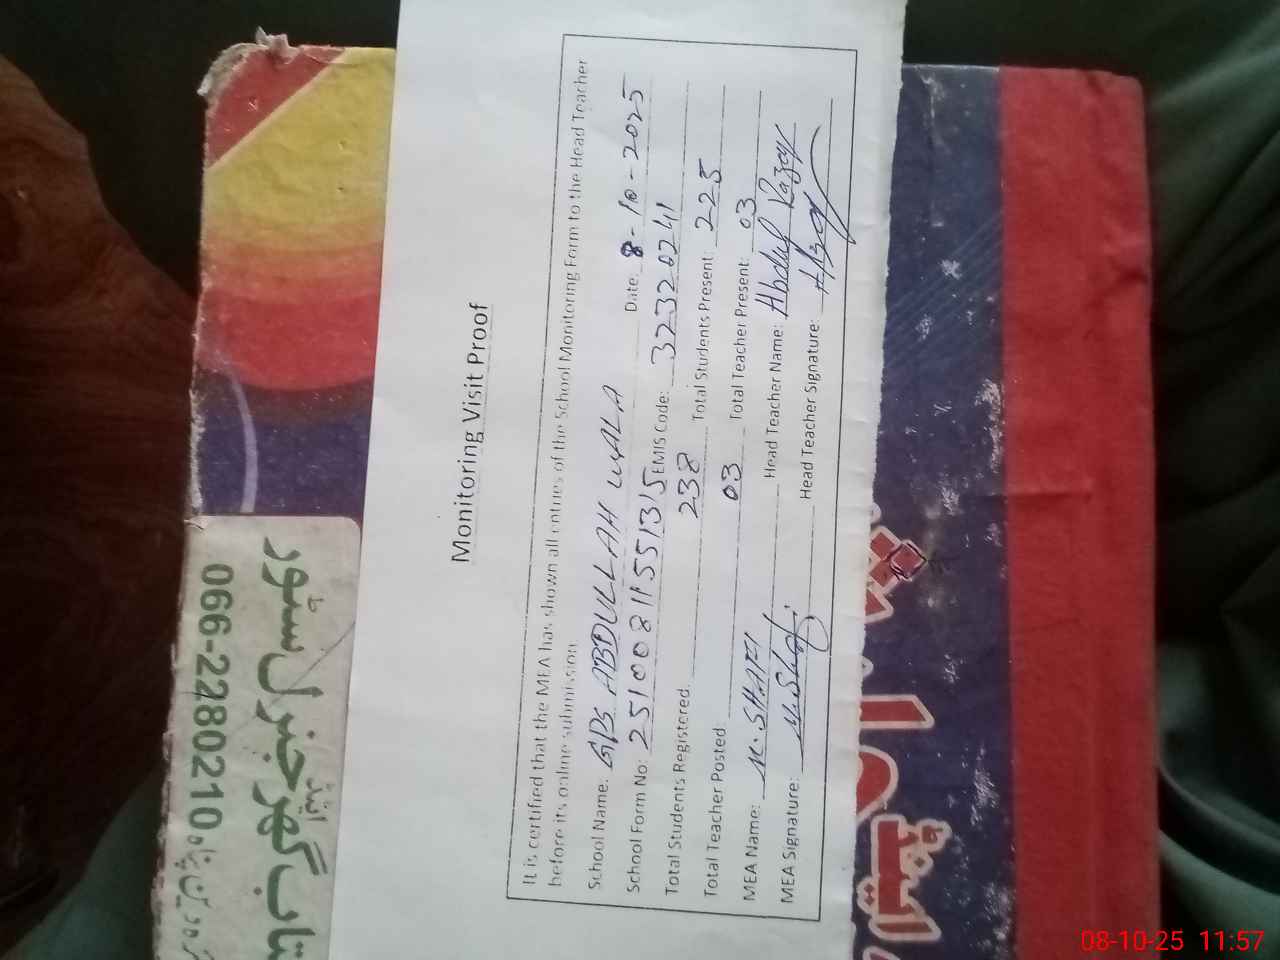 Monitoring Visit Proof
It is certified that the MEA has shown all entries of the School Monitoring Form to the Head Teacher
before its online submission
School Name: GPS ABDULLAH WALA Date: 8-10-2025
School Form No: 25100811551315 EMIS Code: 32320241
Total Students Registered: 238 Total Students Present: 225
Total Teacher Posted: 03 Total Teacher Present: 03
MEA Name: M. SHAFI Head Teacher Name: Abdul Razaq
MEA Signature: M. Shafi Head Teacher Signature:
تاب گھر جنرل سٹور
اینڈ
066-2280210
08-10-25 11:57